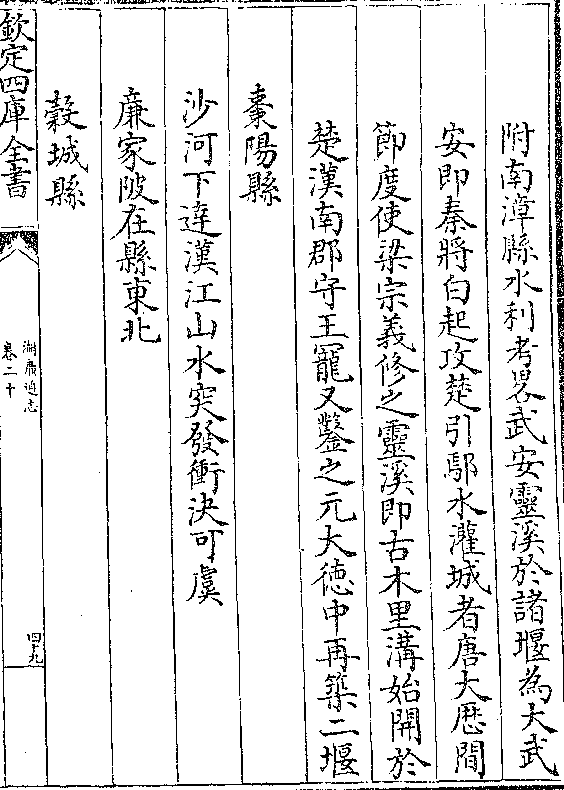 附南漳縣水利考畧武安靈溪於諸堰為大武
安即秦將白起攻楚引鄢水灌城者唐大厯間
節度使梁宗義修之靈溪即古木里溝始開於
楚漢南郡守王寵又鑿之元大徳中再築二堰
棗陽縣
沙河下達漢江山水突發衝決可虞
㢘家陂在縣東北
糓城縣
欽定四庫全書
湖廣通志
卷二十
四十九